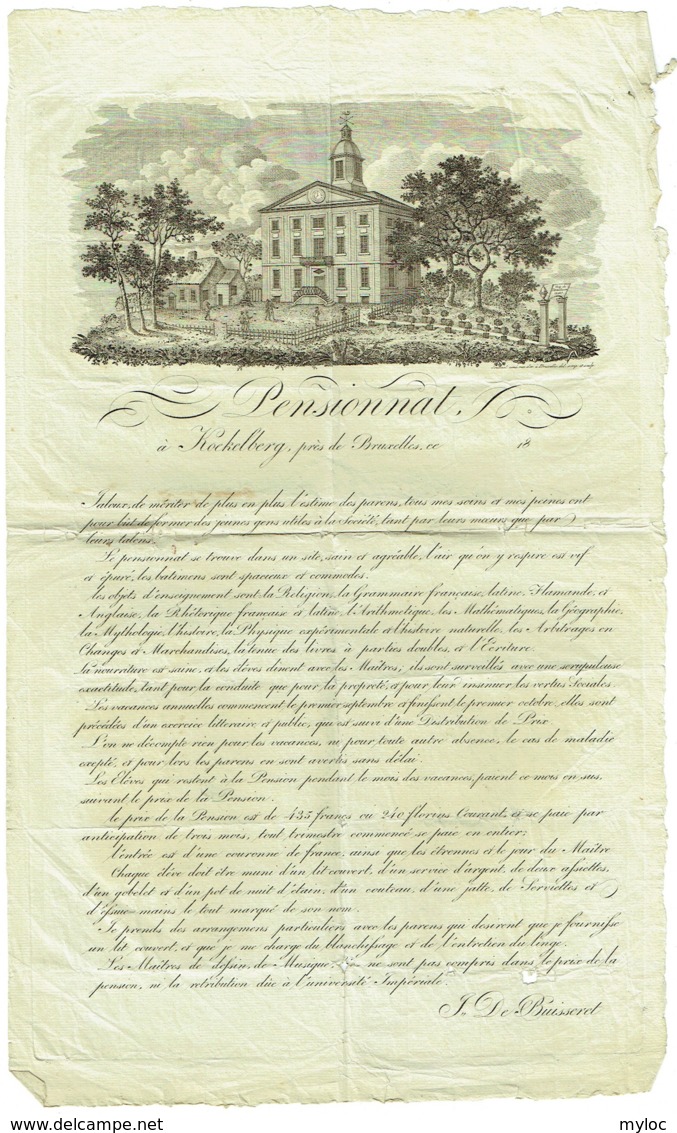 Pensionnat,
à Koekelberg, près de Bruxelles, ce 18
Jaloux, de mériter de plus en plus l'estime des parens, tous mes soins et mes peines ont
pour but de former des jeunes gens utiles à la Société, tant par leurs mœurs que par
leurs talens.
Le pensionnat se trouve dans un site, sain et agréable, l'air qu'on y respire est vif
et épuré, les batimens sont spacieux et commodes.
les objets d'enseignement sont la Religion, la Grammaire française, latine, Flamande, et
Anglaise, la Rhétorique française et latine, l'Arithmetique, les Mathématiques, la Géographie,
la Mythologie, l'histoire, la Physique expérimentale et l'histoire naturelle, les Arbitrages en
Changes et Marchandises, la tenue des livres à parties doubles, et l'Ecriture.
la nourriture est saine, et les élèves dinent avec les Maîtres; ils sont surveillés avec une scrupuleuse
exactitude, tant pour la conduite que pour la propreté, et pour leur insinuer les vertus Sociales.
Les vacances annuelles commencent le premier septembre et finissent le premier octobre, elles sont
précédées d'un exercice litteraire et public, qui est suivi d'une Distribution de Prix.
L'on ne décompte rien pour les vacances, ni pour toute autre absence, le cas de maladie
exepté, et pour lors les parens en sont avertis sans délai.
Les Elèves qui restent à la Pension pendant le mois des vacances, paient ce mois en sus,
suivant le prix de la Pension.
le prix de la Pension est de 435 francs ou 240 florins Courant, et se paie par
anticipation de trois mois, tout trimestre commencé se paie en entier;
l'entrée est d'une couronne de france, ainsi que les étrennes et le jour du Maître
Chaque élève doit être muni d'un lit couvert, d'un service d'argent, de deux assiettes,
d'un gobelet et d'un pot de nuit d'étain, d'un couteau, d'une jatte, de Serviettes et
d'essuie-mains le tout marqué de son nom.
Je prends des arrangemens particuliers avec les parens qui desirent que je fournisse
un lit couvert, et que je me charge du blanchissage et de l'entretien du linge.
Les Maîtres de dessin, de Musique, ne sont pas compris dans le prix de la
pension, ni la retribution düe à l'université Impériale.
J. De Buisseret
myloc
myloc